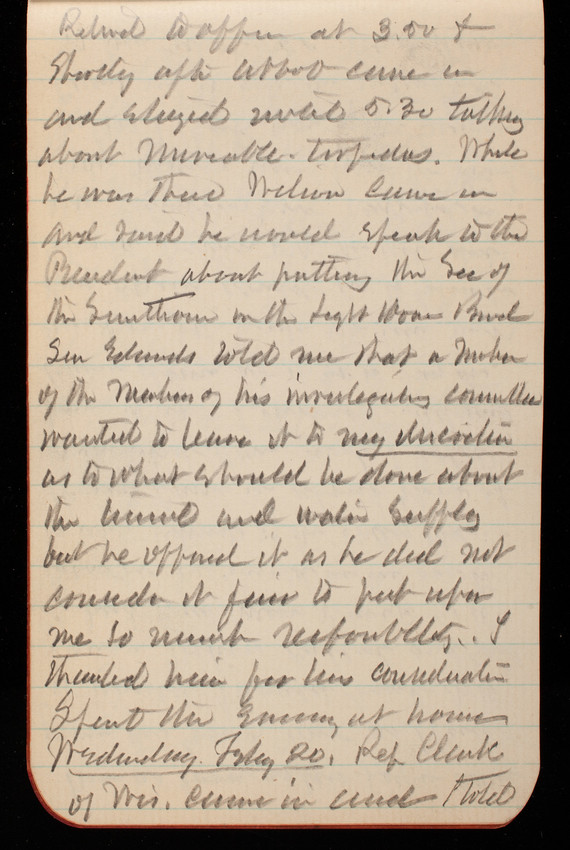 Retired to office at 3.00 &
Shortly after Abbot came in
and stayed until 5.30 talking
about Moveable torpedos. While
he was there Wilson came in
and said he would speak to the
President about putting the Sec of
the Smithson in the Light House Board
Sen Edmunds told me that a number
of the Members of his investigating committee
wanted to leave it to my discretion
as to what should be done about
the tunnel and water supply
but he opposed it as he did not
consider it fair to put upon
me so much responsibility. I
thanked him for his consideration
Spent the Evening at home
Wednesday. Feby 20. Rep Clark
of Wis. came in and I told